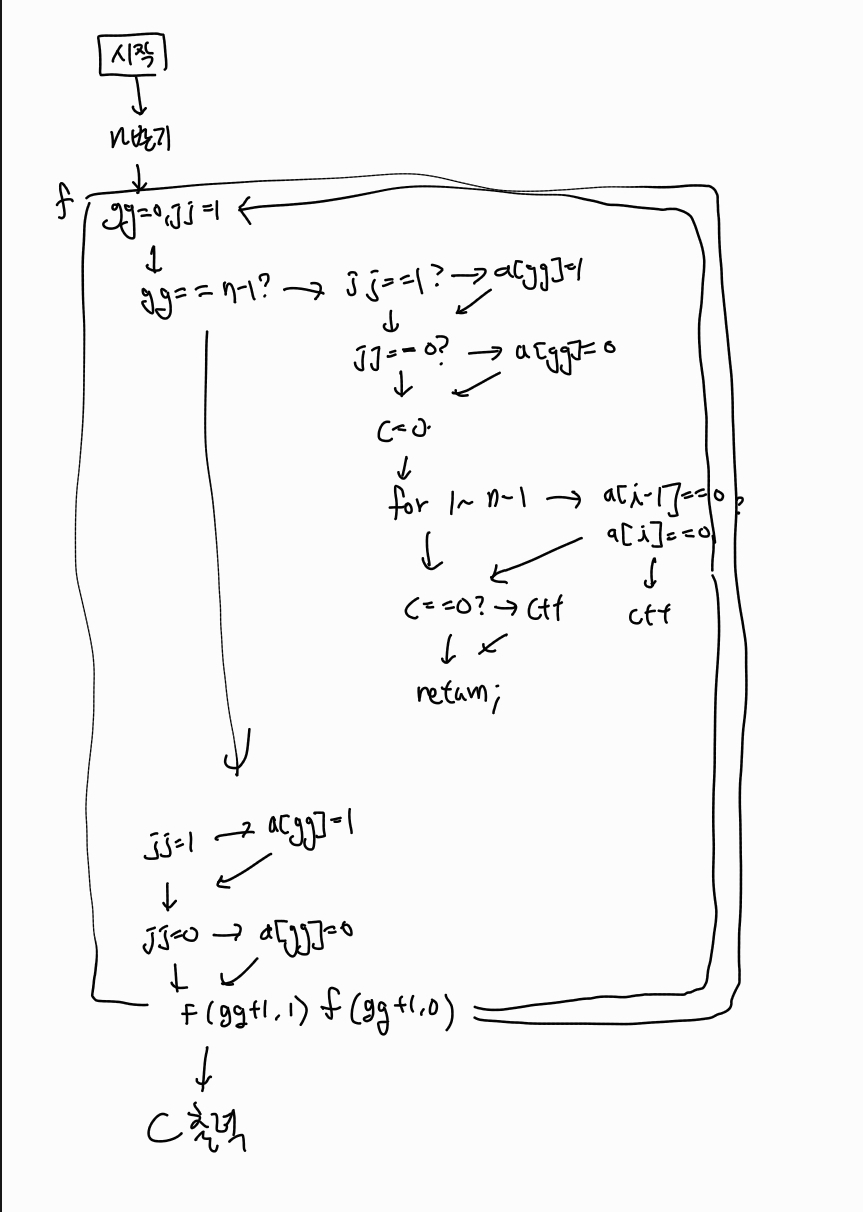 시작
n받기
f
gg=0, jj=1
gg==n-1? → jj==1? → a[gg]=1
jj==0? → a[gg]=0
c=0
for 1~n-1 → a[i-1]==0?
a[i]==0
c==0? → c++
c++
return;
jj=1 → a[gg]=1
jj=0 → a[gg]=0
f(gg+1,1) f(gg+1,0)
C 출력